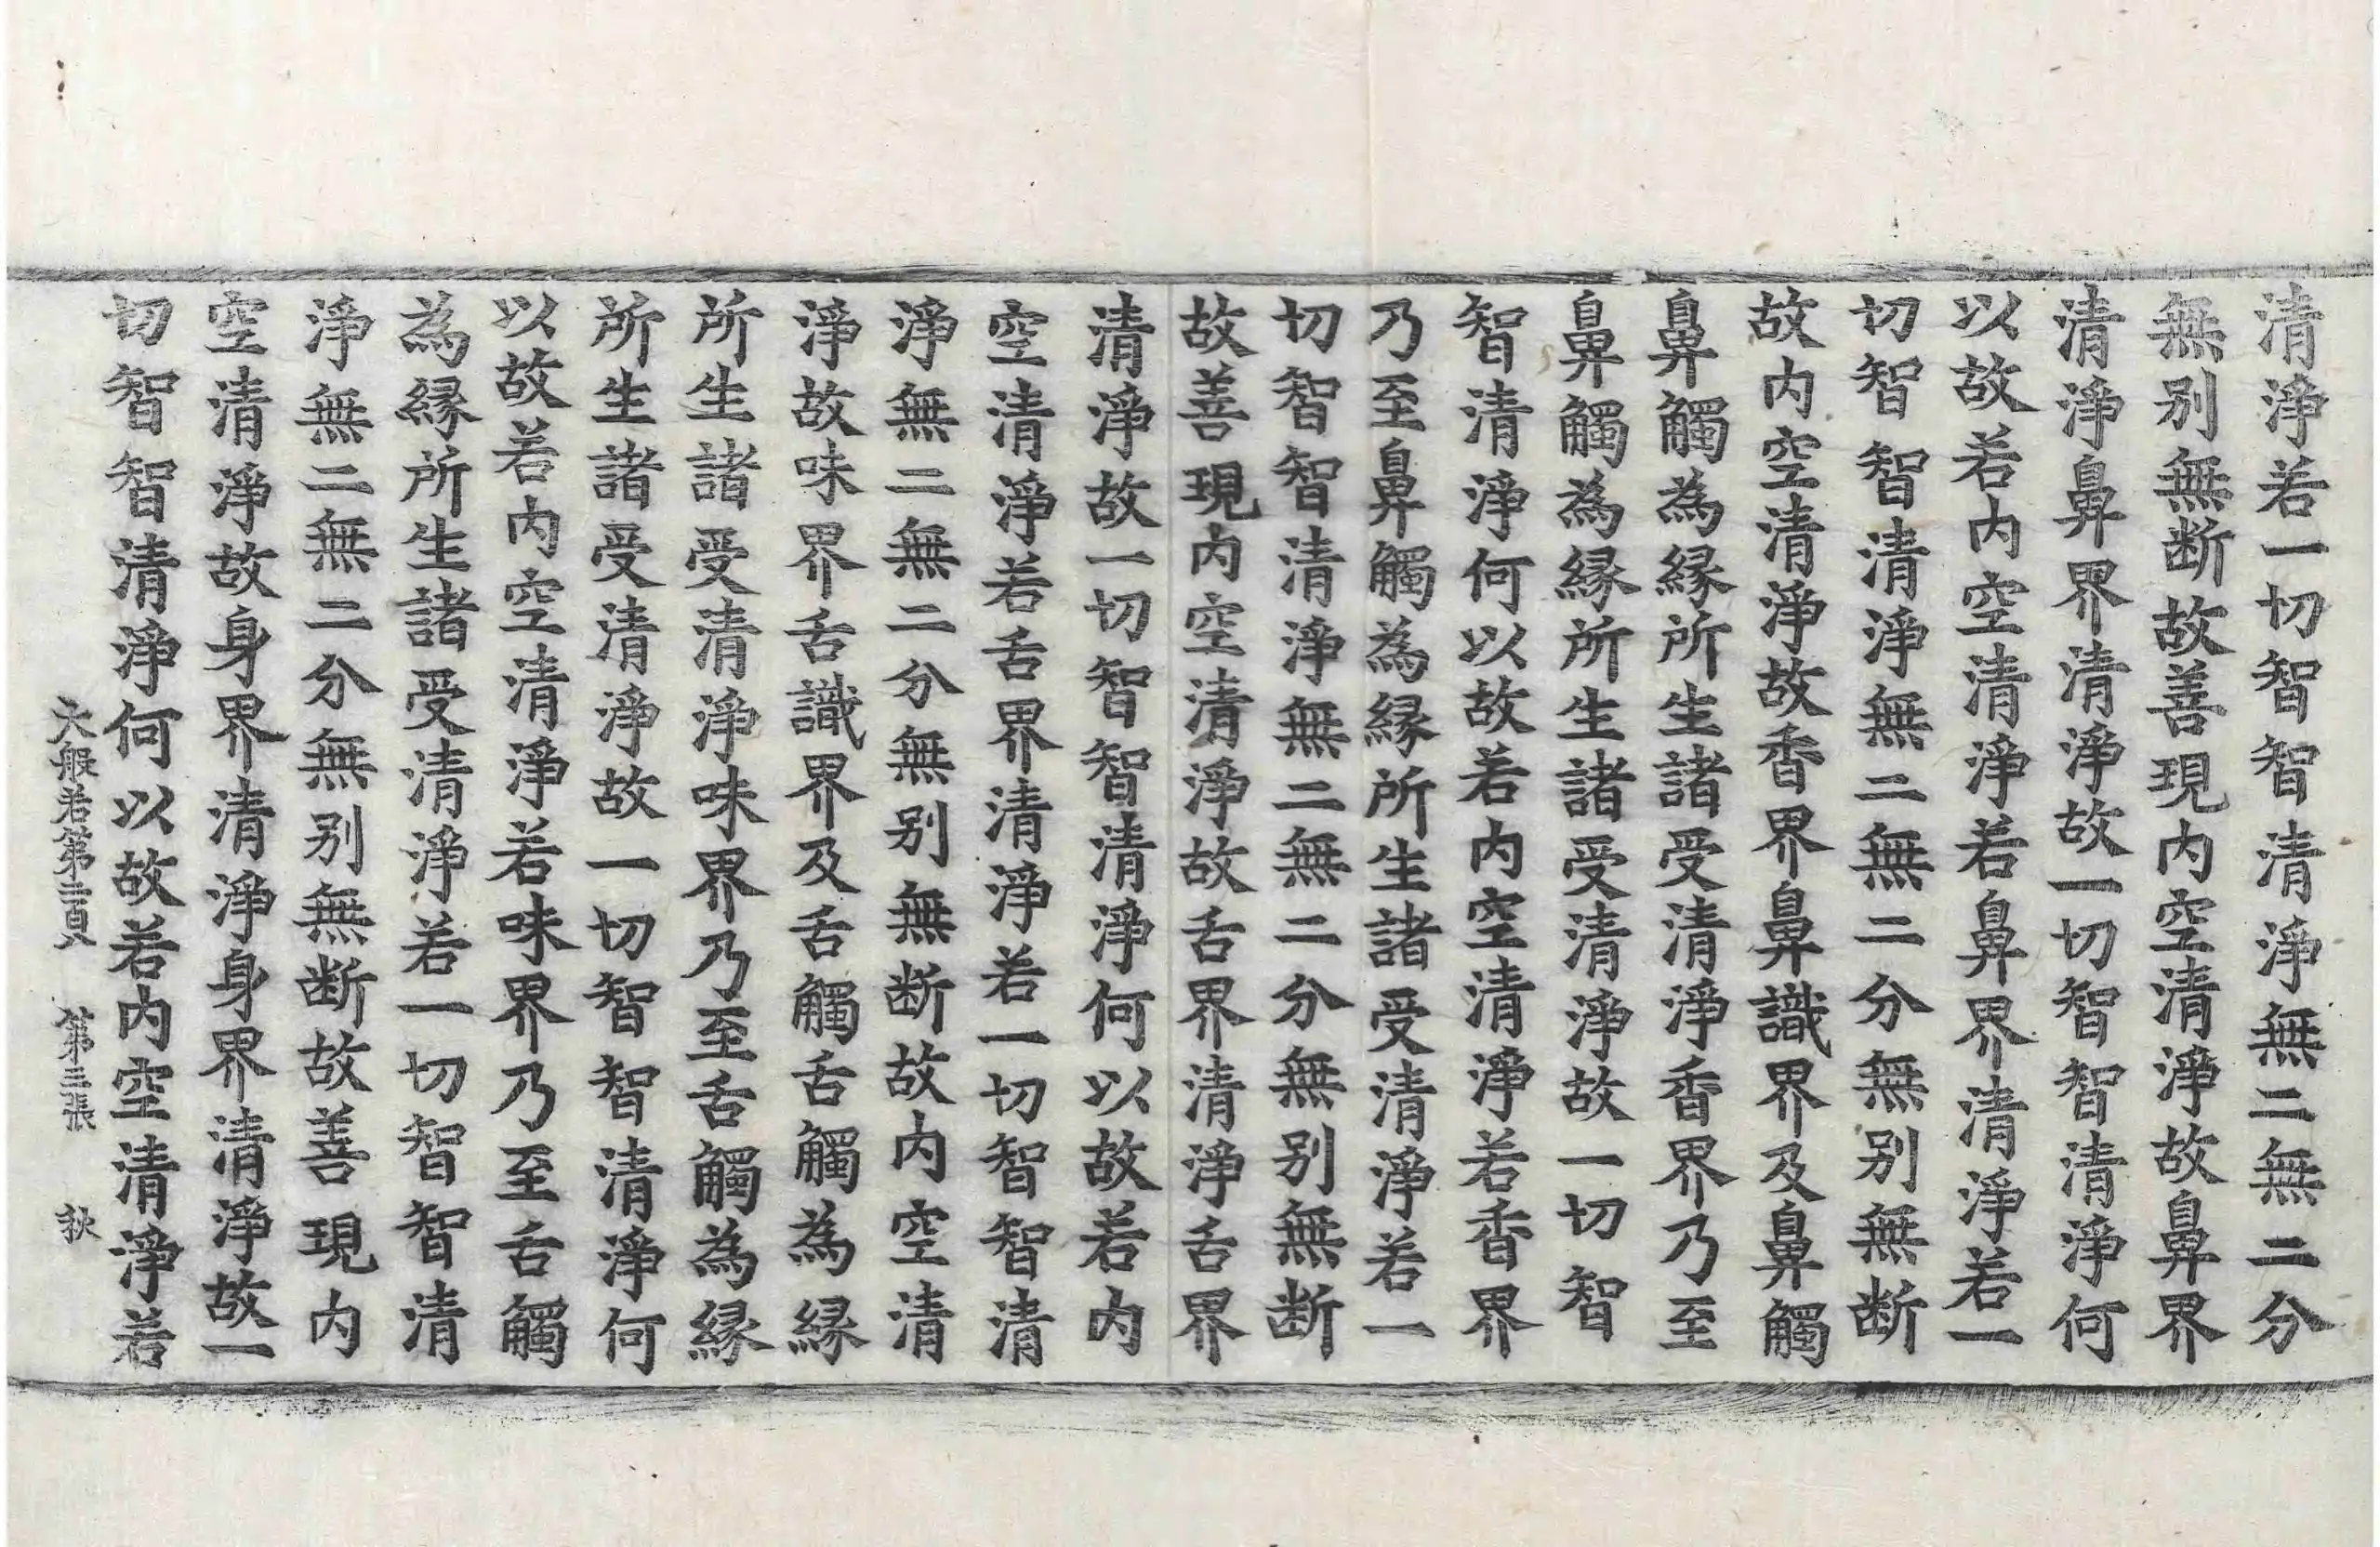 清淨若一切智智清淨無二無二分
無別無断故善現內空清淨故鼻界
清淨鼻界清淨故一切智智清淨何
以故若內空清淨若鼻界清淨若一
切智智清淨無二無二分無別無断
故內空清淨故香界鼻識界及鼻觸
鼻觸為緣所生諸受清淨香界乃至
鼻觸為緣所生諸受清淨故一切智
智清淨何以故若內空清淨若香界
乃至鼻觸為緣所生諸受清淨若一
切智智清淨無二無二分無別無断
故善現內空清淨故舌界清淨舌界
清淨故一切智智清淨何以故若內
空清淨若舌界清淨若一切智智清
淨無二無二分無別無断故內空清
淨故味界舌識界及舌觸舌觸為緣
所生諸受清淨味界乃至舌觸為緣
所生諸受清淨故一切智智清淨何
以故若內空清淨若味界乃至舌觸
為緣所生諸受清淨若一切智智清
淨無二無二分無別無断故善現內
空清淨故身界清淨身界清淨故一
切智智清淨何以故若內空清淨若
大般若第二百八　第三張　狄